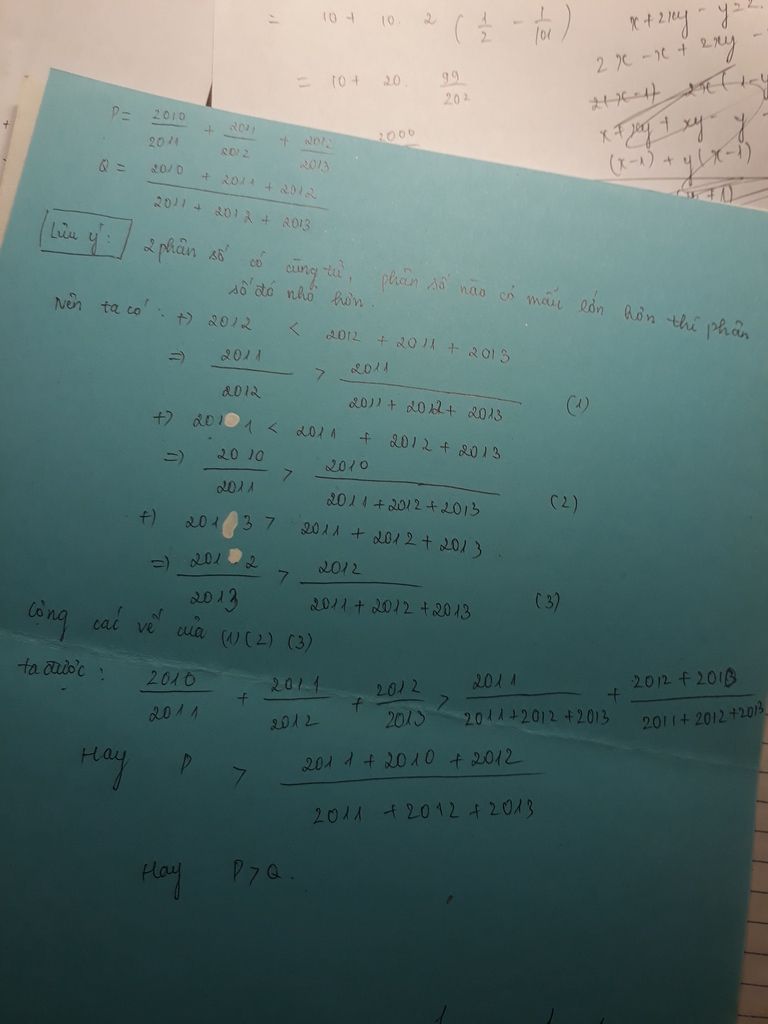 = 10 + 10. 2 ( 1/2 - 1/101 )
= 10 + 20. 99/202
2000
x + 2xy - y = 2
2x - x + 2xy -
x + xy + xy - y
(x-1) + y(x-1)
P = 2010/2011 + 2011/2012 + 2012/2013
Q = (2010 + 2011 + 2012)/(2011 + 2012 + 2013)
Lưu ý: 2 phân số có cùng tử, phân số nào có mẫu lớn hơn thì phân
số đó nhỏ hơn.
Nên ta có: +) 2012 < 2012 + 2011 + 2013
=) 2011/2012 > 2011/(2011 + 2012 + 2013) (1)
+) 2011 < 2011 + 2012 + 2013
=) 2010/2011 > 2010/(2011 + 2012 + 2013) (2)
+) 2013 > 2011 + 2012 + 2013
=) 2012/2013 > 2012/(2011 + 2012 + 2013) (3)
Cộng các vế của (1) (2) (3)
ta được: 2010/2011 + 2011/2012 + 2012/2013 > 2011/(2011 + 2012 + 2013) + (2012 + 2010)/(2011 + 2012 + 2013)
Hay P > (2011 + 2010 + 2012)/(2011 + 2012 + 2013)
Hay P > Q.